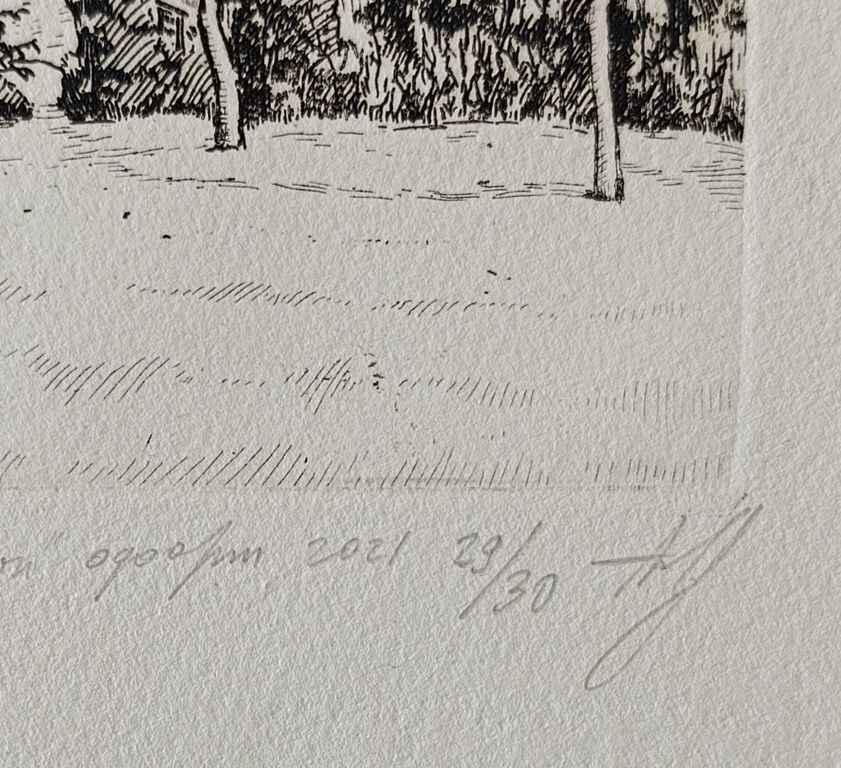 офорт, 2021 29/30